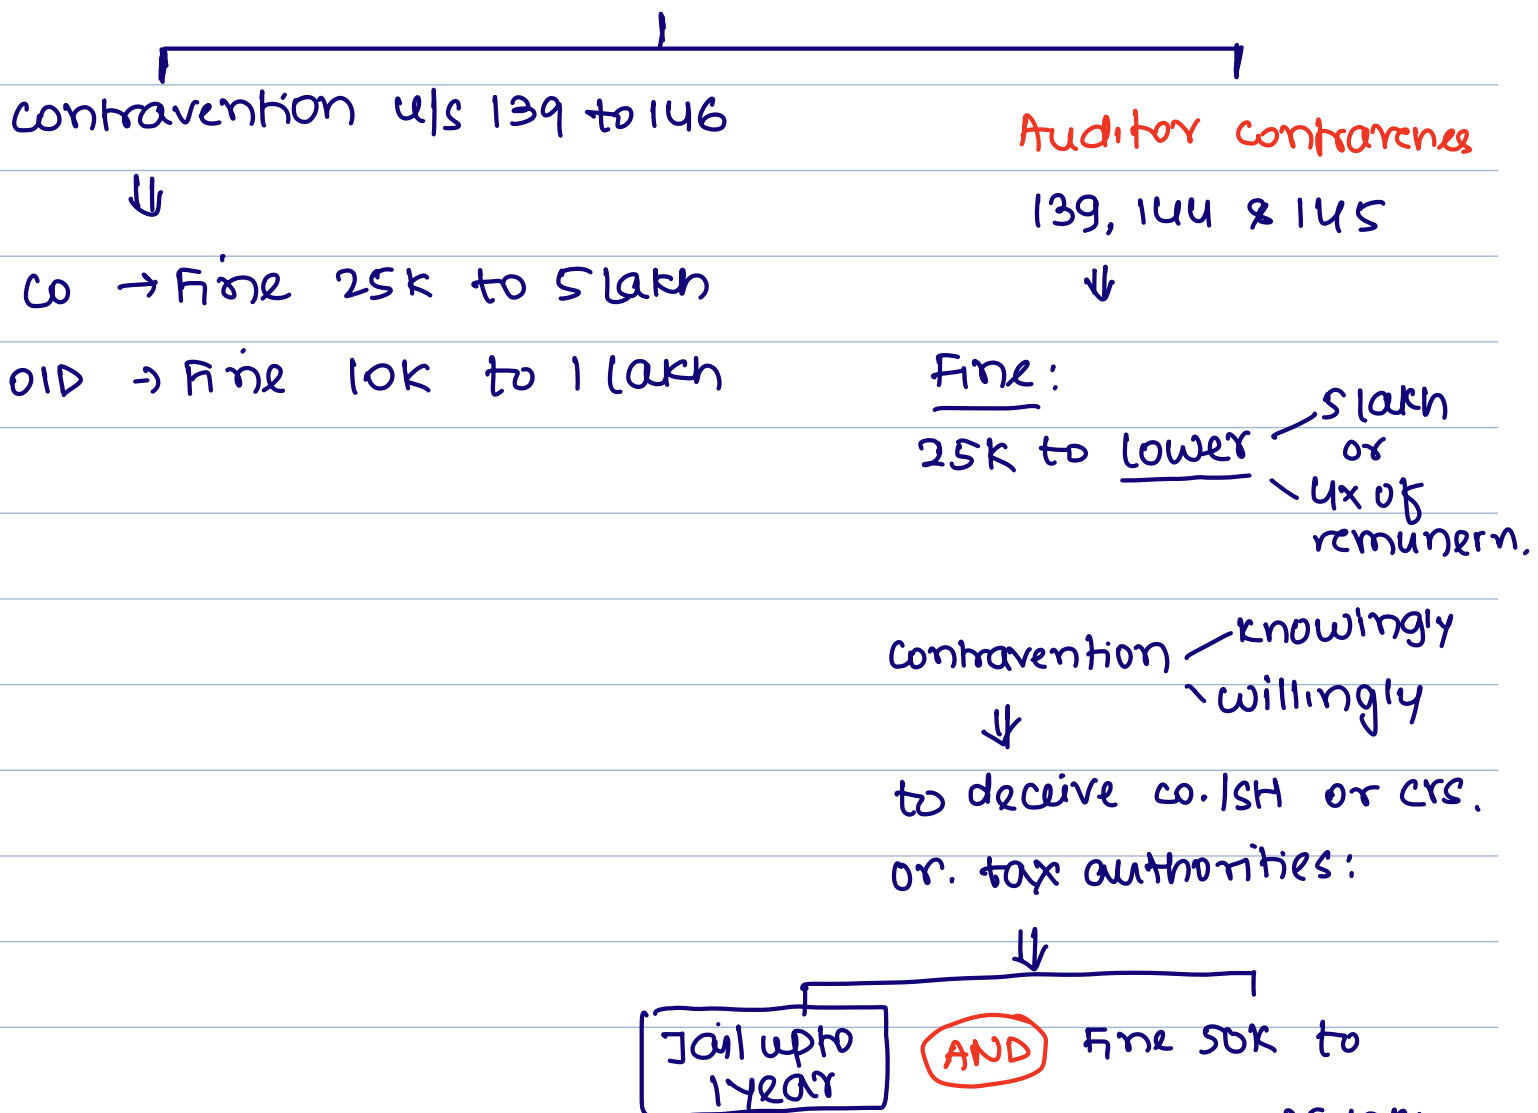 contravention u/s 139 to 146
⇓
co → Fine 25K to 5 lakh
OID → Fine 10K to 1 lakh
Auditor contravenes
139, 144 & 145
⇓
Fine:
25K to lower
5 lakh
or
4x of
remunern.
contravention
knowingly
willingly
⇓
to deceive co./SH or crs.
or. tax authorities:
⇓
Jail upto
1 year
AND
Fine 50K to